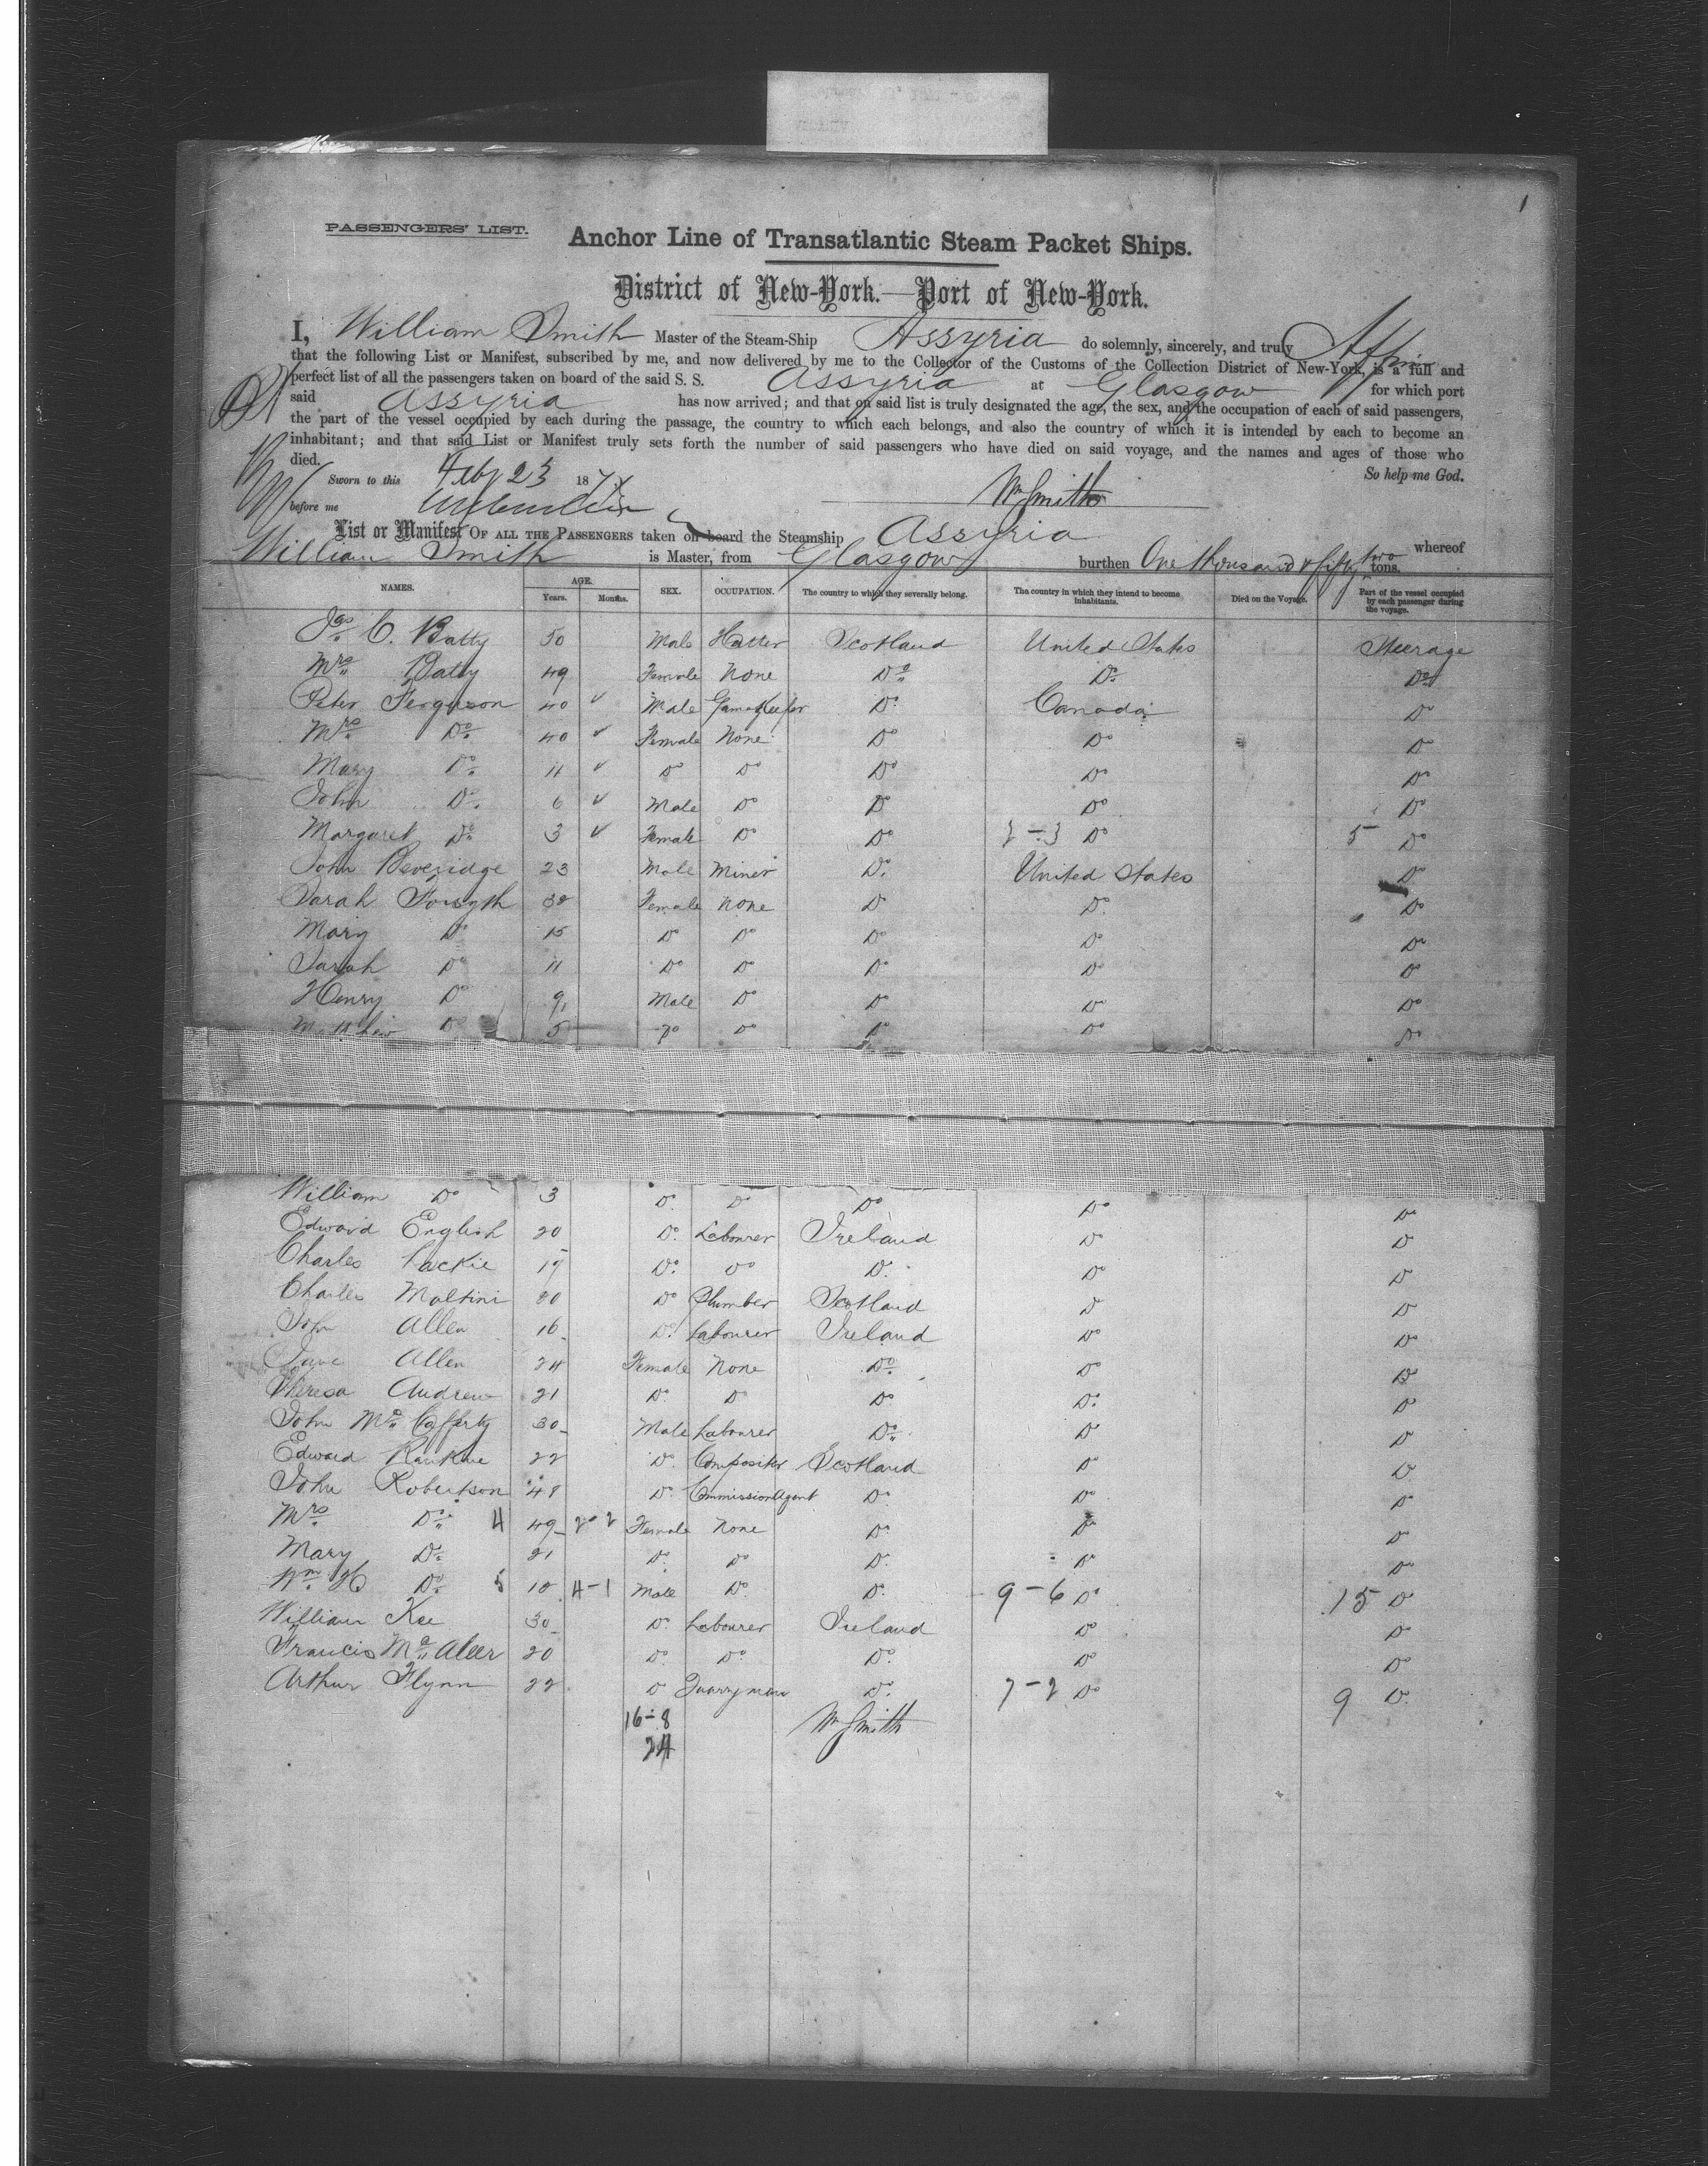 1
PASSENGERS' LIST.
Anchor Line of Transatlantic Steam Packet Ships.
District of New-York.—Port of New-York.
I, William Smith Master of the Steam-Ship Assyria do solemnly, sincerely, and truly Affirm
that the following List or Manifest, subscribed by me, and now delivered by me to the Collector of the Customs of the Collection District of New-York, is a full and
perfect list of all the passengers taken on board of the said S. S. Assyria at Glasgow for which port
said Assyria has now arrived; and that on said list is truly designated the age, the sex, and the occupation of each of said passengers,
the part of the vessel occupied by each during the passage, the country to which each belongs, and also the country of which it is intended by each to become an
inhabitant; and that said List or Manifest truly sets forth the number of said passengers who have died on said voyage, and the names and ages of those who
died. So help me God.
Sworn to this Feby 23 187
before me Wm Smith
List or Manifest OF ALL THE PASSENGERS taken on board the Steamship Assyria whereof
William Smith is Master, from Glasgow burthen One thousand & fifty two tons.
NAMES. AGE. Years. Months. SEX. OCCUPATION. The country to which they severally belong. The country in which they intend to become inhabitants. Died on the Voyage. Part of the vessel occupied by each passenger during the voyage.
Jas C. Batty 50 Male Hatter Scotland United States Steerage
Mrs Batty 49 Female None Do Do Do
Peter Ferguson 40 ✓ Male Gamekeeper Do Canada Do
Mrs Do 40 ✓ Female None Do Do Do
Mary Do 11 ✓ Do Do Do Do Do
John Do 6 ✓ Male Do Do Do Do
Margaret Do 3 ✓ Female Do Do 2-3 Do 5 Do
John Beveridge 23 Male Miner Do United States Do
Sarah Forsyth 32 Female None Do Do Do
Mary Do 15 Do Do Do Do Do
Sarah Do 11 Do Do Do Do Do
Henry Do 9 Male Do Do Do Do
Matthew Do 5 Do Do Do Do Do
William Do 3 Do Do Do Do Do
Edward English 20 Do Labourer Ireland Do Do
Charles Lackie 19 Do Do Do Do Do
Charles Maltini 20 Do Plumber Scotland Do Do
John Allen 16 Do Labourer Ireland Do Do
Jane Allen 24 Female None Do Do Do
Theresa Andrew 21 Do Do Do Do Do
John Mc Cafferty 30 Male Labourer Do Do Do
Edward Rankine 22 Do Compositor Scotland Do Do
John Robertson 48 Do Commission Agent Do Do Do
Mrs Do 4 49 2-2 Female None Do Do Do
Mary Do 21 Do Do Do Do Do
Wm H Do 5 10 4-1 Male Do Do 9-6 Do 15 Do
William Kee 30 Do Labourer Ireland Do Do
Francis Mc Aleer 20 Do Do Do Do Do
Arthur Flynn 22 Do Quarryman Do 7-2 Do 9 Do
16-8 Wm Smith
24